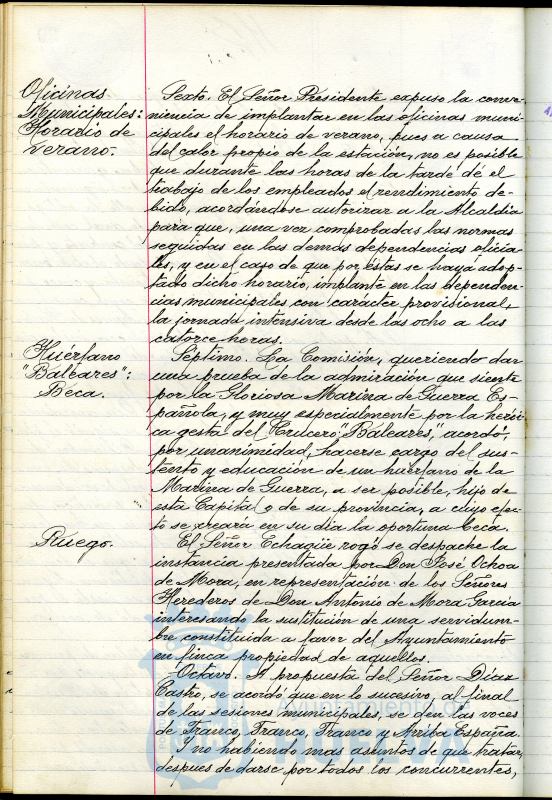 Oficinas
Municipales:
Horario de
verano.
Sexto. El Señor Presidente expuso la conve-
niencia de implantar en las oficinas muni-
cipales el horario de verano, pues a causa
del calor propio de la estación, no es posible
que durante las horas de la tarde dé el
trabajo de los empleados el rendimiento de-
bido, acordándose autorizar a la Alcaldía
para que, una vez comprobadas las normas
seguidas en las demas dependencias oficia-
les, y en el caso de que por éstas se haya adop-
tado dicho horario, implante en las dependen-
cias municipales, con carácter provisional,
la jornada intensiva desde las ocho a las
catorce horas.
Huérfano
"Baleares":
Beca.
Séptimo. La Comisión, queriendo dar
una prueba de la admiración que siente
por la Gloriosa Marina de Guerra Es-
pañola, y muy especialmente por la heroi-
ca gesta del Crucero "Baleares", acordó,
por unanimidad, hacerse cargo del sus-
tento y educación de un huérfano de la
Marina de Guerra, a ser posible, hijo de
esta Capital o de su provincia, a cuyo efec-
to se creará en su dia la oportuna beca.
Ruego.
El Señor Echagüe rogó se despache la
instancia presentada por Don José Ochoa
de Mora, en representación de los Señores
Herederos de Don Antonio de Mora García
interesando la sustitución de una servidum-
bre constituida a favor del Ayuntamiento
en finca propiedad de aquellos.
Octavo. A propuesta del Señor Díaz
Castro, se acordó que en lo sucesivo, al final
de las sesiones municipales, se den las voces
de Franco, Franco, Franco y Arriba España.
Y no habiendo mas asuntos de que tratar,
despues de darse por todos los concurrentes,
Ayuntamiento de
HUELVA